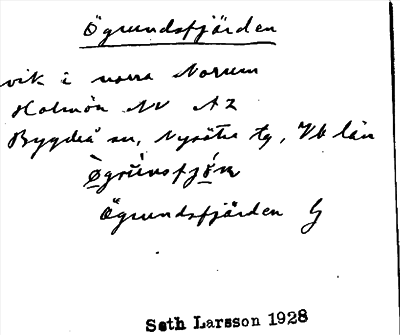 Ögrundsfjärden
vik i norra Norum
Holmön NV AZ
Bygdeå sn, Nysätra tg, Vb län
Ögrundsfjärden G
Seth Larsson 1928